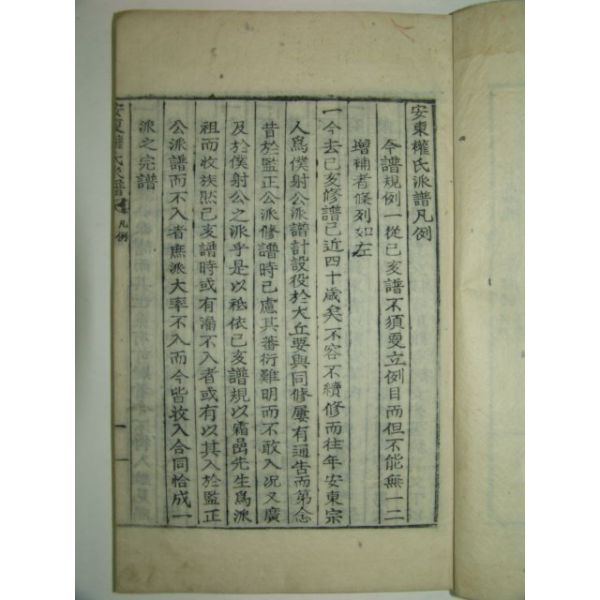 安東權氏派譜凡例
今譜規例一從己亥譜不須更立例目而但不能無一二
增補者條列如左
一今去己亥修譜已近四十歲矣不容不續修而往年安東宗
人爲僕射公派譜計設役於大丘要與同修屢有通告而第念
昔於監正公派修譜時已慮其蕃衍難明而不敢入況又廣
及於僕射公之派乎是以秪依己亥譜規以霜嵒先生爲派
祖而收族然己亥譜時或有漏不入者或有以其入於監正
公派譜而不入者庶派大率不入而今皆收入合同恰成一
派之完譜
安東權氏派譜 凡例 一